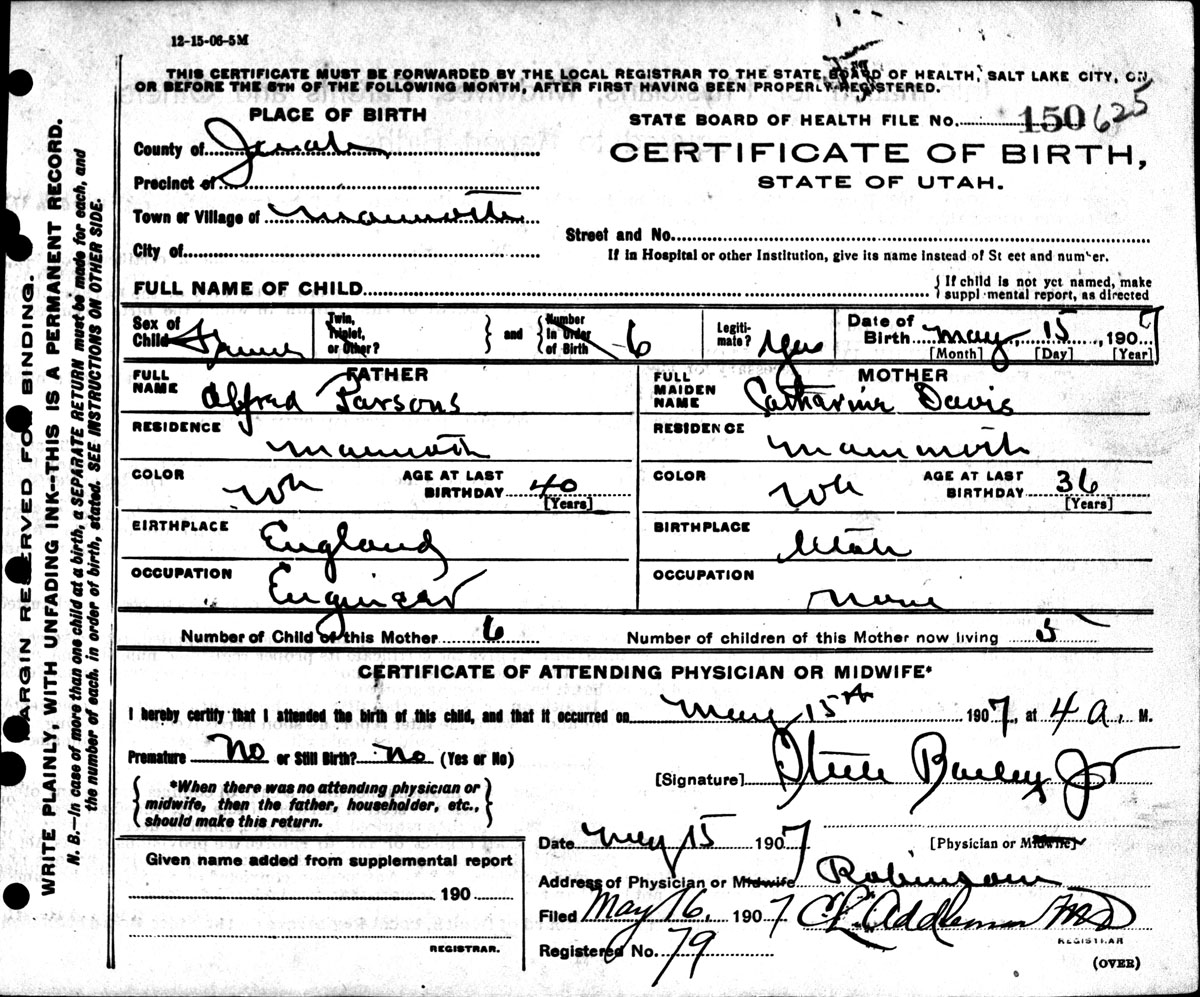 12-15-06-5M
THIS CERTIFICATE MUST BE FORWARDED BY THE LOCAL REGISTRAR TO THE STATE BOARD OF HEALTH, SALT LAKE CITY, ON
OR BEFORE THE 5TH OF THE FOLLOWING MONTH, AFTER FIRST HAVING BEEN PROPERLY REGISTERED.
PLACE OF BIRTH
STATE BOARD OF HEALTH FILE No. 150625
County of Juab
CERTIFICATE OF BIRTH,
Precinct of
STATE OF UTAH.
Town or Village of Mammoth
Street and No.
City of
If in Hospital or other Institution, give its name instead of St eet and number.
FULL NAME OF CHILD
{If child is not yet named, make
suppl mental report, as directed
Sex of Child Female
Twin, Triplet, or Other?
and
Number In Order of Birth 6
Legiti-mate? Yes
Date of Birth May 15, 1907
[Month] [Day] [Year]
FATHER
FULL NAME Alfred Parsons
RESIDENCE Mammoth
COLOR Wh AGE AT LAST BIRTHDAY 40
[Years]
BIRTHPLACE England
OCCUPATION Engineer
MOTHER
FULL MAIDEN NAME Catharine Davis
RESIDENCE Mammoth
COLOR Wh AGE AT LAST BIRTHDAY 36
[Years]
BIRTHPLACE Utah
OCCUPATION None
Number of Child of this Mother 6 Number of children of this Mother now living 5
CERTIFICATE OF ATTENDING PHYSICIAN OR MIDWIFE*
I hereby certify that I attended the birth of this child, and that it occurred on May 15th 1907, at 4 a. M.
Premature No or Still Birth? No (Yes or No)
[Signature] Steele Bailey Jr
{*When there was no attending physician or
midwife, then the father, householder, etc.,
should make this return.}
Date May 15 1907
[Physician or Midwife]
Given name added from supplemental report
190
REGISTRAR.
Address of Physician or Midwife Robinson
Filed May 16, 1907 Addleman MD
REGISTRAR
Registered No. 79
(OVER)
MARGIN RESERVED FOR BINDING.
WRITE PLAINLY, WITH UNFADING INK—THIS IS A PERMANENT RECORD.
N. B.—In case of more than one child at a birth, a SEPARATE RETURN must be made for each, and
the number of each, in order of birth, stated. SEE INSTRUCTIONS ON OTHER SIDE.